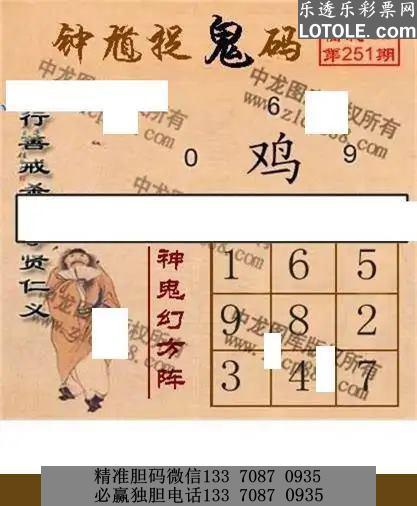 乐透乐彩票网
LOTOLE.COM
钟馗捉鬼码
第251期
中龙图库版权所有
行善戒
贤仁义
6
0 鸡 9
神鬼幻方阵
1 6 5
9 8 2
3 4 7
精准胆码微信133 7087 0935
必赢独胆电话133 7087 0935